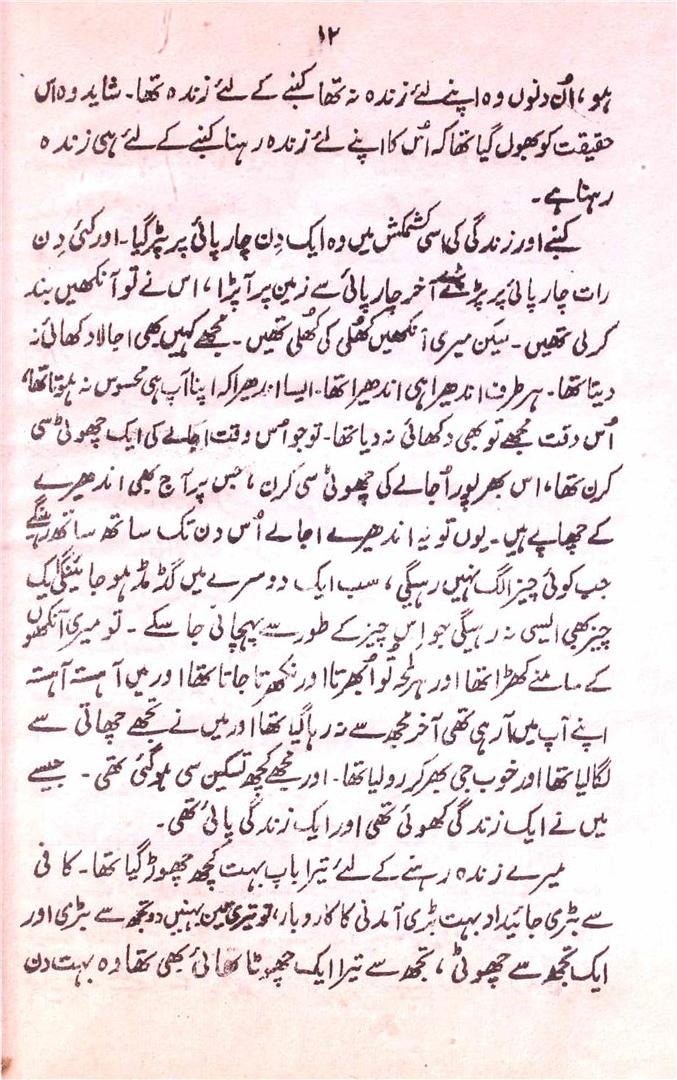 ۱۲
ہو، اُن دنوں وہ اپنے لئے زندہ نہ تھا کنبے کے لئے زندہ تھا۔ شاید وہ اس
حقیقت کو بھول گیا تھا کہ اُس کا اپنے لئے زندہ رہنا کنبے کے لئے ہی زندہ
رہنا ہے۔
کنبے اور زندگی کی اسی کشمکش میں وہ ایک دِن چارپائی پر پڑ گیا۔ اور کئی دِن
رات چارپائی پر پڑے آخر چارپائی سے زمین پر آپڑا، اس نے تو آنکھیں بند
کر لی تھیں۔ لیکن میری آنکھیں کھُلی کی کھُلی تھیں۔ مجھے کہیں بھی اجالا دکھائی نہ
دیتا تھا۔ ہر طرف اندھیرا ہی اندھیرا تھا۔ ایسا اندھیرا کہ اپنا آپ ہی محسوس نہ ہوتا تھا،
اُس وقت مجھے تو بھی دکھائی نہ دیا تھا۔ تو جو اُس وقت اجالے کی ایک چھوٹی سی
کرن تھا، اس بھرپور اُجالے کی چھوٹی سی کرن، جس پر آج بھی اندھیرے
کے چھاپے ہیں۔ یوں تو یہ اندھیرے اجالے اُس دن تک ساتھ ساتھ رہینگے
جب کوئی چیز الگ نہیں رہیگی، سب ایک دوسرے میں گڈ مڈ ہو جائینگی ایک
چیز بھی ایسی نہ رہیگی جو اِس چیز کے طور سے پہچانی جا سکے۔ تو میری آنکھوں
کے سامنے کھڑا تھا اور ہر لمحہ تو اُبھرتا اور نکھرتا جاتا تھا اور میں آہستہ آہستہ
اپنے آپ میں آ رہی تھی آخر مجھ سے نہ رہا گیا تھا اور میں نے تجھے چھاتی سے
لگا لیا تھا اور خوب جی بھر کر رو لیا تھا۔ اور مجھے کچھ تسکین سی ہو گئی تھی۔ جیسے
میں نے ایک زندگی کھوئی تھی اور ایک زندگی پائی تھی۔
میرے زندہ رہنے کے لئے تیرا باپ بہت کچھ چھوڑ گیا تھا۔ کافی
سے بڑی جائیداد بہت بڑی آمدنی کا کاروبار، تو تیری تین بہنیں دو تجھ سے بڑی اور
ایک تجھ سے چھوٹی، تجھ سے تیرا ایک چھوٹا بھائی بھی تھا وہ بہت دن